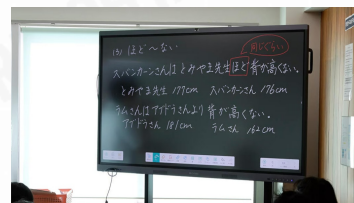 (3) ほど〜ない
同じくらい
スバンカーンさんはとみやま先生ほど背が高くない。
とみやま先生 177cm スバンカーンさん 176cm
ラムさんはアイドラさんより背が高くない。
アイドラさん 181cm ラムさん 162cm